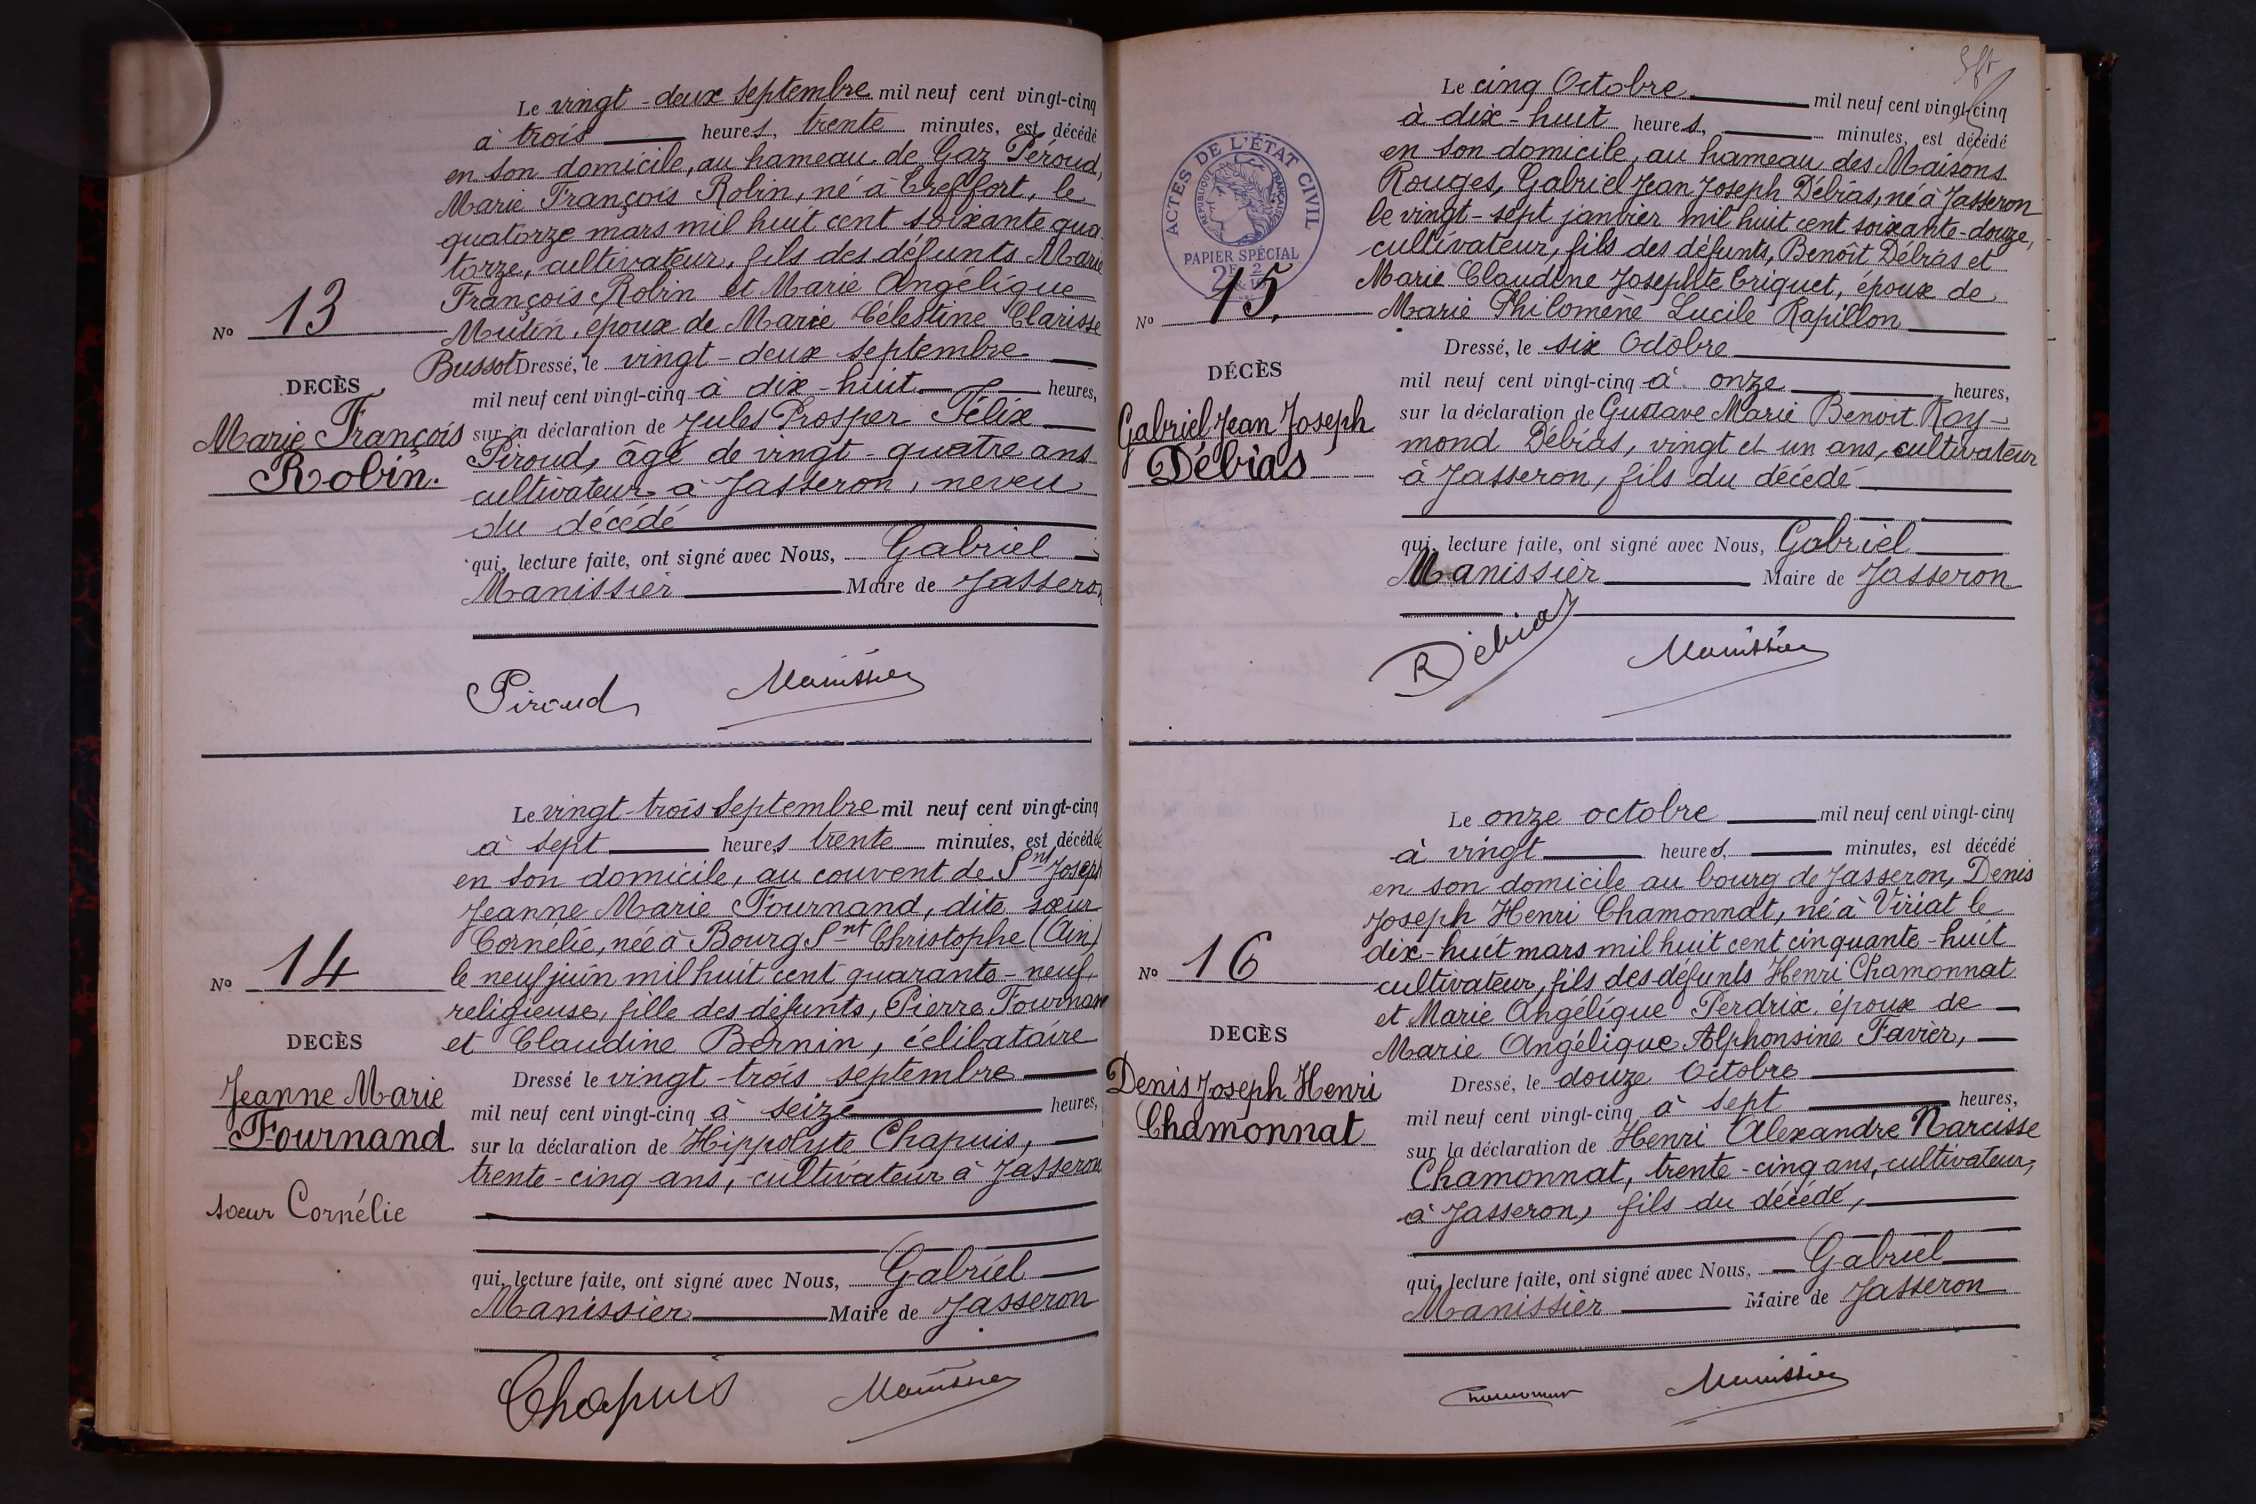 Le vingt-deux septembre mil neuf cent vingt-cinq
à trois heures, trente minutes, est décédé
en son domicile, au hameau de Gaz Péroud,
Marie François Robin, né à Treffort, le
quatorze mars mil huit cent soixante qua
torze, cultivateur, fils des défunts Marie
François Robin et Marie Angélique
Mutin, époux de Marie Célestine Clarisse
No 13
Bussot Dressé, le vingt-deux septembre
DECÈS
mil neuf cent vingt-cinq à dix-huit heures,
Marie François
Robin.
sur la déclaration de Jules Prosper Félix
Piroud, âgé de vingt-quatre ans
cultivateur à Jasseron, neveu
du décédé
qui, lecture faite, ont signé avec Nous, Gabriel
Manissier Maire de Jasseron
Piroud Manissier
Le vingt-trois Septembre mil neuf cent vingt-cinq
à sept heures trente minutes, est décédée
en son domicile, au couvent de Snt Joseph
Jeanne Marie Fournand, dite sœur
Cornélie, née à Bourg Snt Christophe (Ain)
le neuf juin mil huit cent quarante-neuf,
religieuse, fille des défunts, Pierre Fournand
et Claudine Bernin, célibataire
No 14
DECÈS
Jeanne Marie
Fournand
sœur Cornélie
Dressé le vingt-trois septembre
mil neuf cent vingt-cinq à seize heures,
sur la déclaration de Hippolyte Chapuis,
trente-cinq ans, cultivateur à Jasseron
qui, lecture faite, ont signé avec Nous, Gabriel
Manissier Maire de Jasseron
Chapuis Manissier
ACTES DE L'ÉTAT CIVIL
RÉPUBLIQUE FRANÇAISE
PAPIER SPÉCIAL
Le cinq Octobre mil neuf cent vingt-cinq
à dix-huit heures, minutes, est décédé
en son domicile, au hameau des Maisons
Rouges, Gabriel Jean Joseph Débias, né à Jasseron
le vingt-sept janvier mil huit cent soixante-douze,
cultivateur, fils des défunts, Benoît Débias et
Marie Claudine Josephte Criquet, époux de
Marie Philomène Lucile Rapillon
No 15.
DÉCÈS
Gabriel Jean Joseph
Débias
Dressé, le six Octobre
mil neuf cent vingt-cinq à onze heures,
sur la déclaration de Gustave Marie Benoit Ray-
mond Débias, vingt et un ans, cultivateur
à Jasseron, fils du décédé
qui, lecture faite, ont signé avec Nous, Gabriel
Manissier Maire de Jasseron
R Débias Manissier
Le onze octobre mil neuf cent vingt-cinq
à vingt heures, minutes, est décédé
en son domicile au bourg de Jasseron, Denis
Joseph Henri Chamonnat, né à Viriat le
dix-huit mars mil huit cent cinquante-huit
cultivateur, fils des défunts Henri Chamonnat
et Marie Angélique Perdrix, époux de
Marie Angélique Alphonsine Favier,
No 16
DECÈS
Denis Joseph Henri
Chamonnat
Dressé, le douze Octobre
mil neuf cent vingt-cinq à sept heures,
sur la déclaration de Henri Alexandre Narcisse
Chamonnat, trente-cinq ans, cultivateur,
à Jasseron, fils du décédé,
qui, lecture faite, ont signé avec Nous, Gabriel
Manissier Maire de Jasseron
Chamonnat Manissier